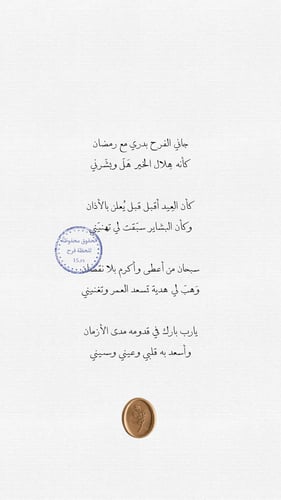 جاني الفرح بدري مع رمضان
كأنه هِلال الخير هَلّ وبشّرني
كأن العِيد أقبل قبل يُعلن بالأذان
وكأن البشاير سبَقت لي تهنيَني
سبحان من أعطى وأكرم بلا نقصان
وَهبَ لي هدية تسعد العمر وتغنيني
يارب بارك في قدومه مدى الأزمان
وأسعد به قلبي وعيني وسنيني
الحقوق محفوظة
للحظة فرح